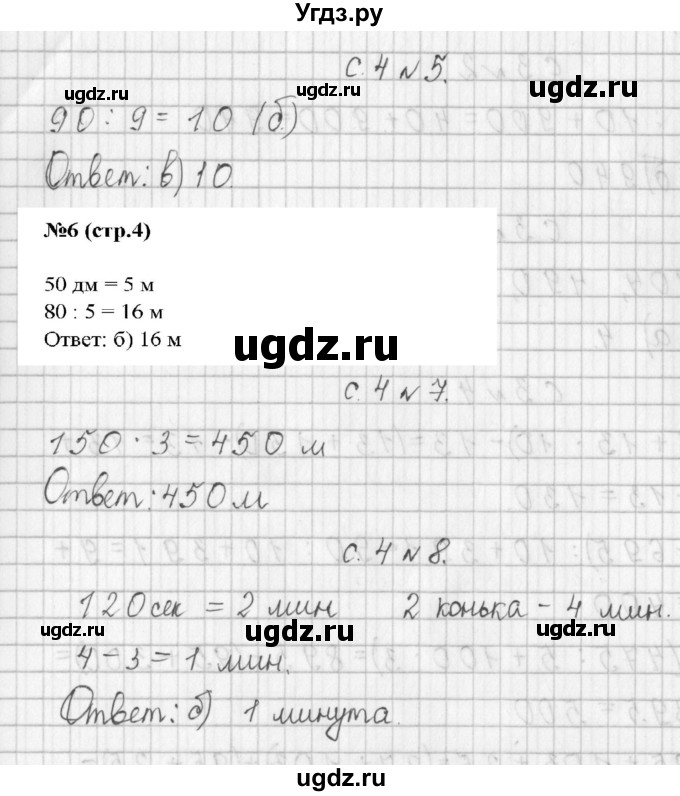 Угдз.ру
с. 4 № 5.
ugdz.ru ugdz.ru ugdz.ru
90 : 9 = 10 (б.)
Ответ: в) 10
№6 (стр.4)
50 дм = 5 м
80 : 5 = 16 м
Ответ: б) 16 м
ugdz.ru
с. 4 № 7.
150 · 3 = 450 м
Ответ: 450 м
с. 4 № 8.
120 сек = 2 мин 2 конька - 4 мин.
ugdz.ru ugdz.ru ugdz.ru
4 - 3 = 1 мин.
Ответ: б) 1 минута.
ugdz.ru